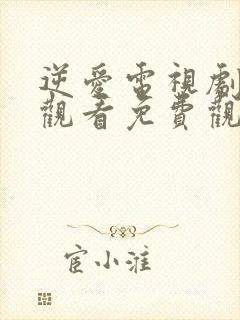 逆愛電視劇
觀看免費觀
宦小淮